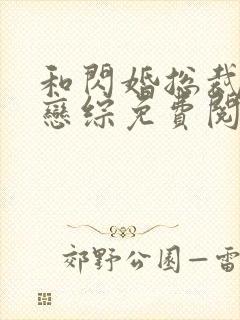 和閃婚総裁
戀綜免費閱
郊野公園—雷